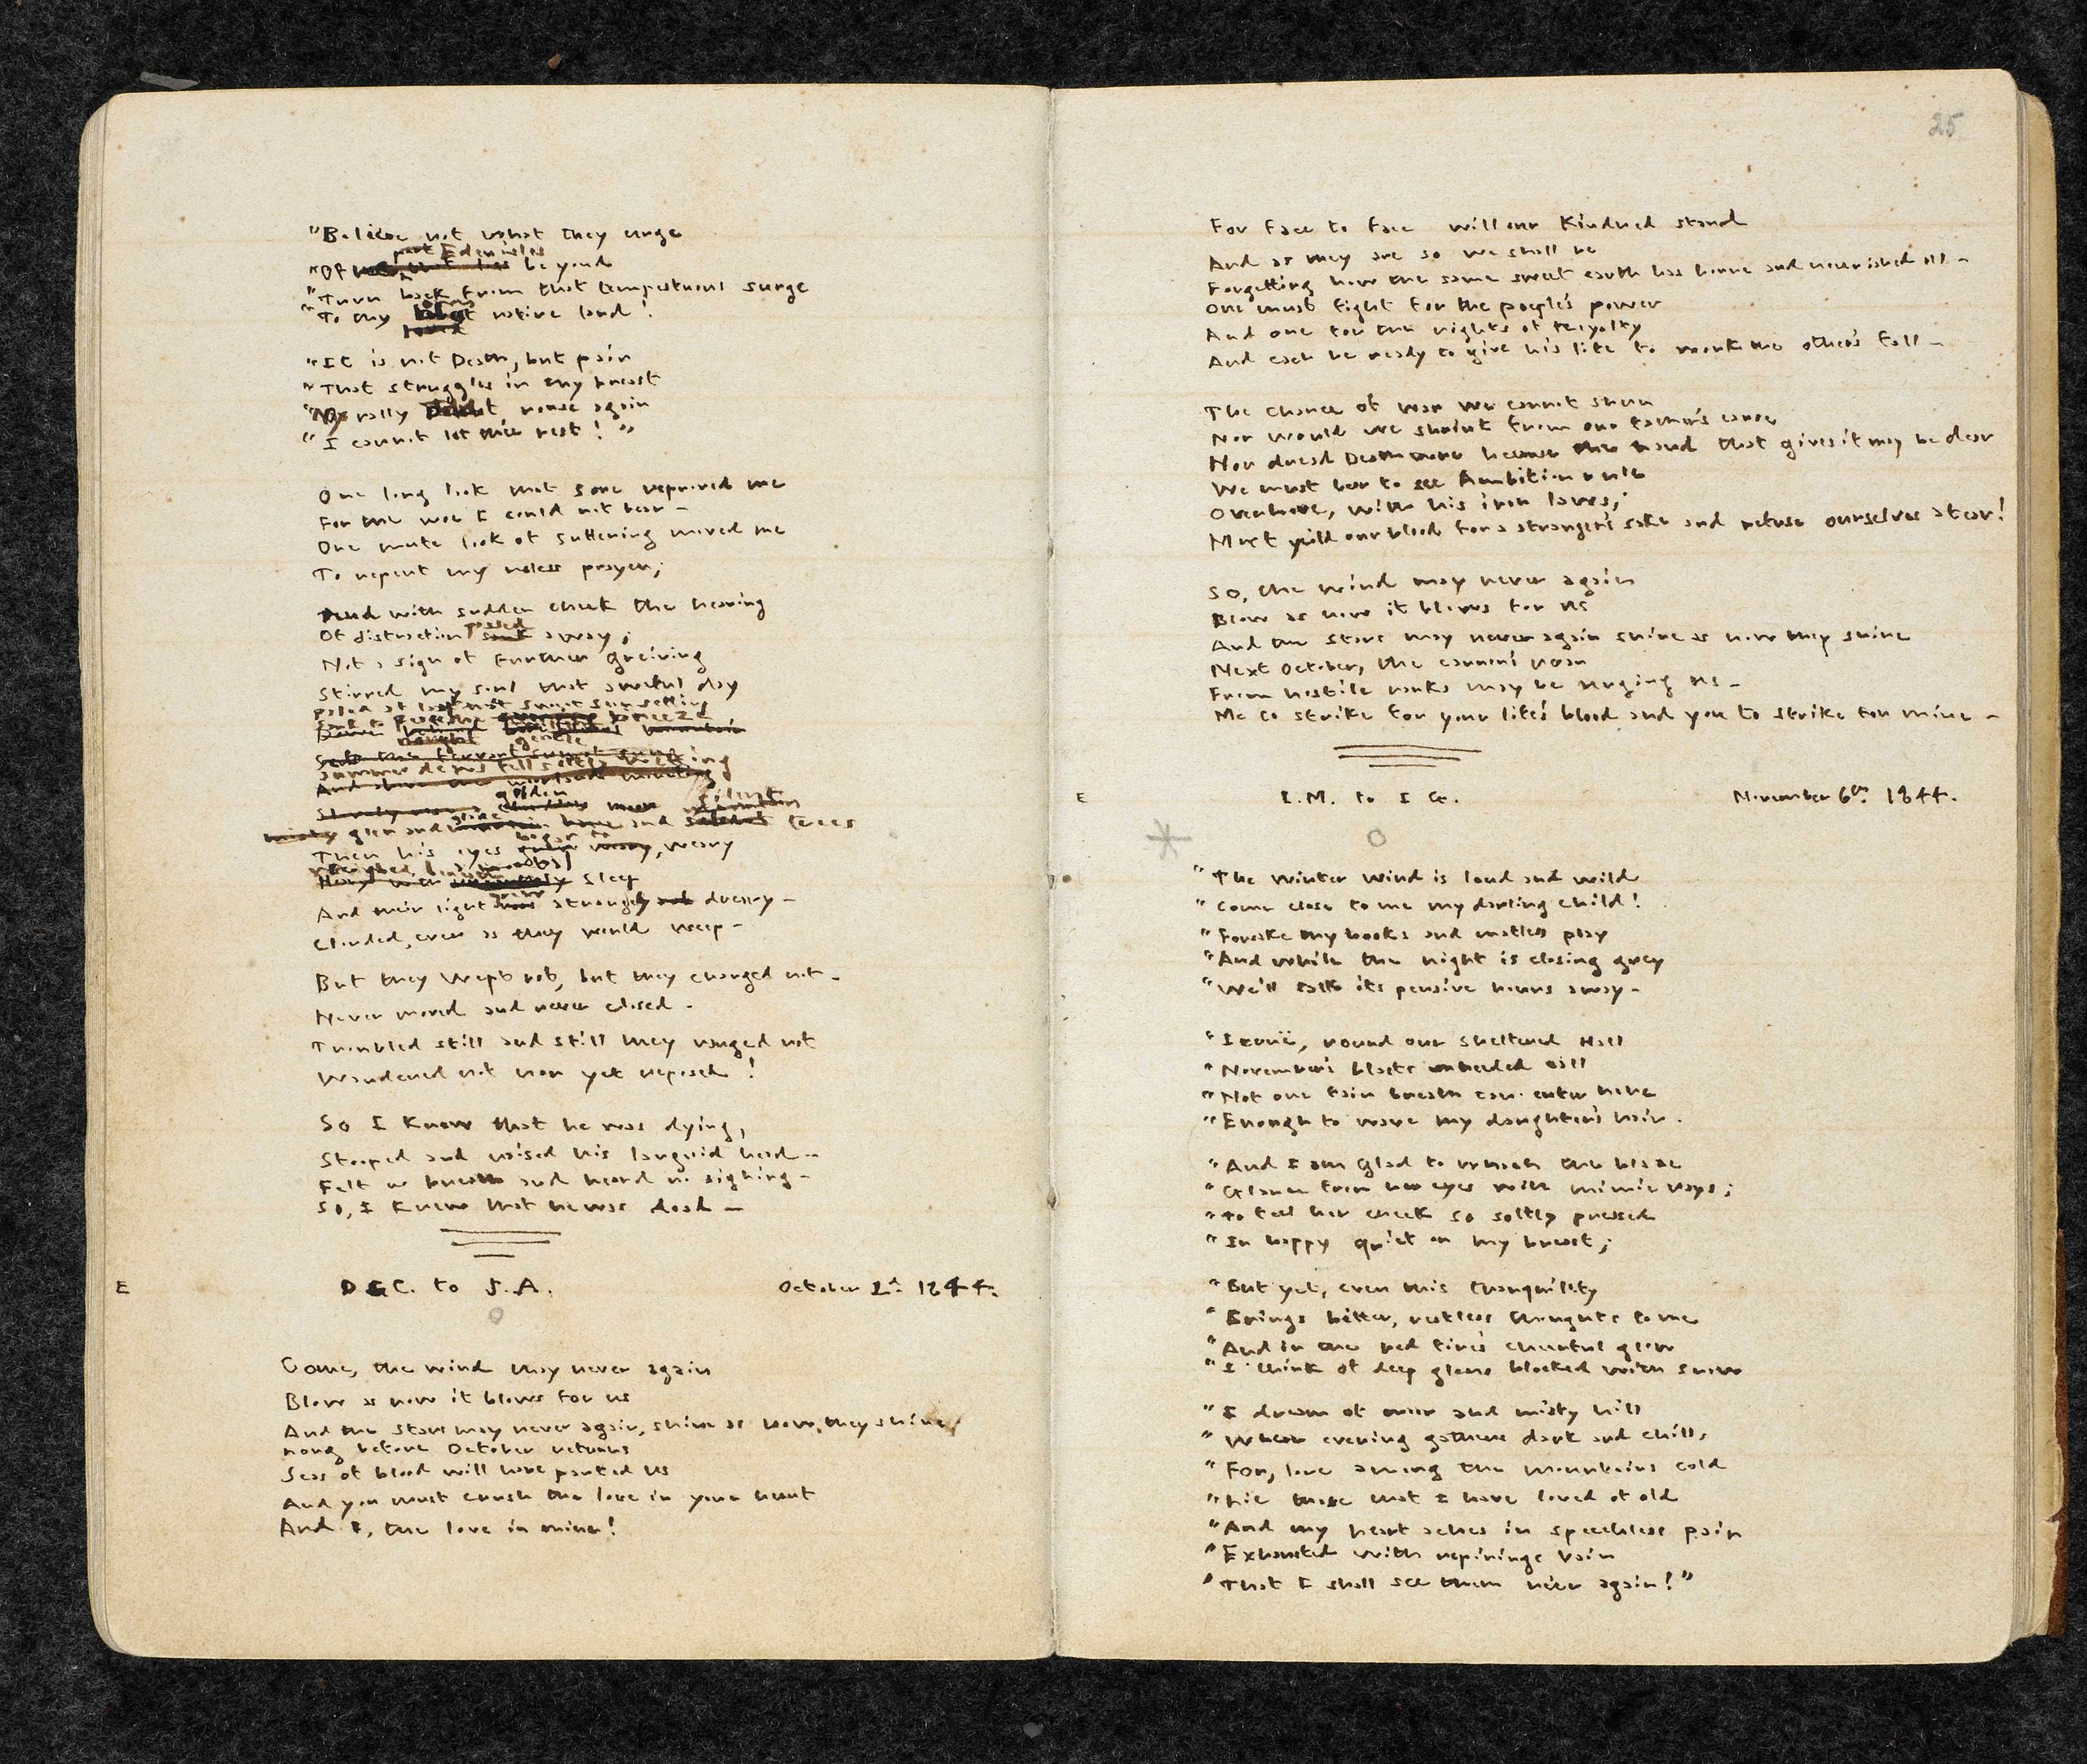 "Believe not what they urge
"Of past Eden isles beyond
"Turn back from that tempestuous surge
"To my native land!
"It is not Death, but pain
"That struggles in my breast
"Nay rally rouse again
"I cannot let thee rest!"
One long look that sore reproved me
For the woe I could not bear -
One mute look of suffering moved me
To repent my useless prayer;
And with sudden check the heaving
Of distraction passed away;
Not a sign of further greiving
Stirred my soul that awful day
paled at last sweet sun setting
Sunk to peace the breeze
Summer dews fell softly wetting
glen and glade and silent trees
Then his eyes began to weary,
sleep
And their light grew strangely dreary -
Clouded, even as they would weep -
But they wept not, but they changed not -
Never moved and never closed -
Troubled still and still they ranged not
Wandered not nor yet reposed!
So I knew that he was dying,
Stooped and raised his languid head -
Felt no breath and heard no sighing -
So, I knew that he was dead -
E D.G.C. to J.A. October 1844.
Come, the wind may never again
Blow as now it blows for us
And the stars may never again, shine as now, they shine,
Long before October returns
Seas of blood will have parted us
And you must crush the love in your heart
And I, the love in mine!
25
For face to face will our Kindred stand
And as they are so we shall be
Forgetting how the same sweet earth has borne and nourished all -
One must fight for the people's power
And one for the rights of Royalty
And each be ready to give his life to work the other's fall -
The chance of war we cannot shun
Nor would we shrink from our father's cause
Nor dread Death more because the hand that gives it may be dear
We must bear to see Ambition rule
Over love, with his iron laws;
Must yeild our blood for a stranger's sake and refuse ourselves a tear!
So, the wind may never again
Blow as now it blows for us
And the stars may never again shine as now they shine
Next October, the cannon's roar
From hostile ranks may be urging us -
Me to strike for your life's blood and you to strike for mine -
E I.M. to I G. November 6th 1844.
"The winter wind is loud and wild
"Come close to me my darling child!
"Forsake thy books and mateless play
"And while the night is closing grey
"We'll talk its pensive hours away -
"Iernë, round our sheltered Hall
"November's blasts unheeded call
"Not one fain breath can enter here
"Enough to wave my daughter's hair.
"And I am glad to watch the blaze
"Glance from her eyes with mimic rays;
"To feel her cheek so softly pressed
"In happy quiet on my breast;
"But yet, even this tranquillity
"Brings bitter, restless thoughts to me
"And in the red fire's cheerful glow
"I think of deep glens blocked with snow
"I dream of moor and misty hill
"Where evening gathers dark and chill,
"For, lone among the mountains cold
"Lie those that I have loved of old
"And my heart aches in speechless pain
"Exhausted with repinings vain
"That I shall see them ne'er again!"